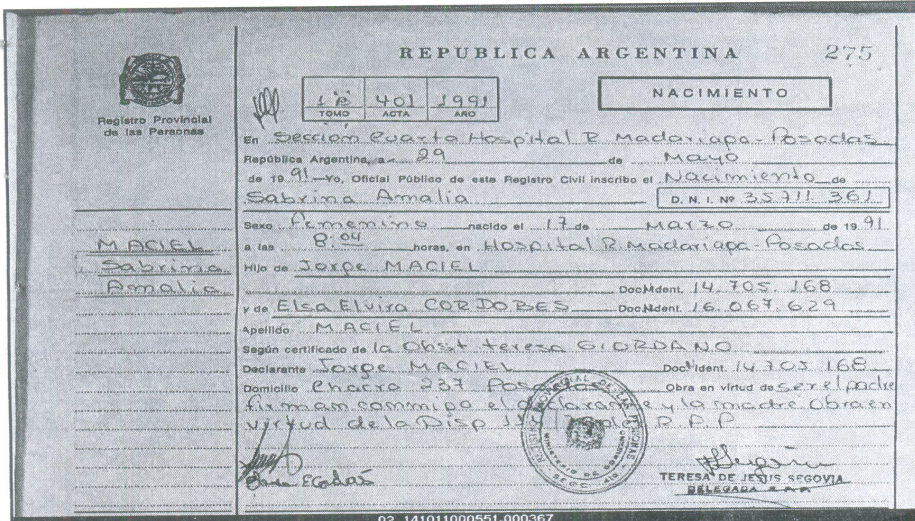 REPUBLICA ARGENTINA 275
Registro Provincial
de las Personas
1º 401 1991
TOMO ACTA AÑO
NACIMIENTO
En Sección Cuarta Hospital R. Madariaga - Posadas
República Argentina, a 29 de Mayo
de 1991 Yo, Oficial Público de este Registro Civil inscribo el Nacimiento de
Sabrina Amalia D. N. I. Nº 35.711.361
Sexo Femenino nacido el 17 de Marzo de 1991
a las 8:04 horas, en Hospital R. Madariaga - Posadas
MACIEL
Sabrina
Amalia
Hijo de Jorge MACIEL
Doc. Ident. 14.705.168
y de Elsa Elvira CORDOBES Doc. Ident. 16.067.629
Apellido MACIEL
Según certificado de la Obst teresa GIORDANO
Declarante Jorge MACIEL Doc. Ident. 14.705.168
Domicilio Chacra 237 Posadas Obra en virtud de ser el padre
firman conmigo el declarante y la madre obra en
virtud de la Disp R.P.P
MINISTERIO DE GOBIERNO
TERESA DE JESUS SEGOVIA
DELEGADA R.P.P.
02_141011000551_000367